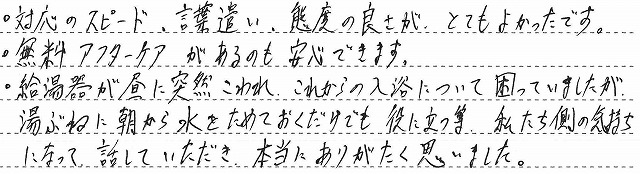 ・対応のスピード、言葉遣い、態度の良さが、とてもよかったです。
・無料アフターケアがあるのも安心できます。
・給湯器が昼に突然こわれ、これからの入浴について困っていましたが、
湯ぶねに朝から水をためておくだけでも役に立つ等、私たち側の気持ち
になって、話していただき、本当にありがたく思いました。